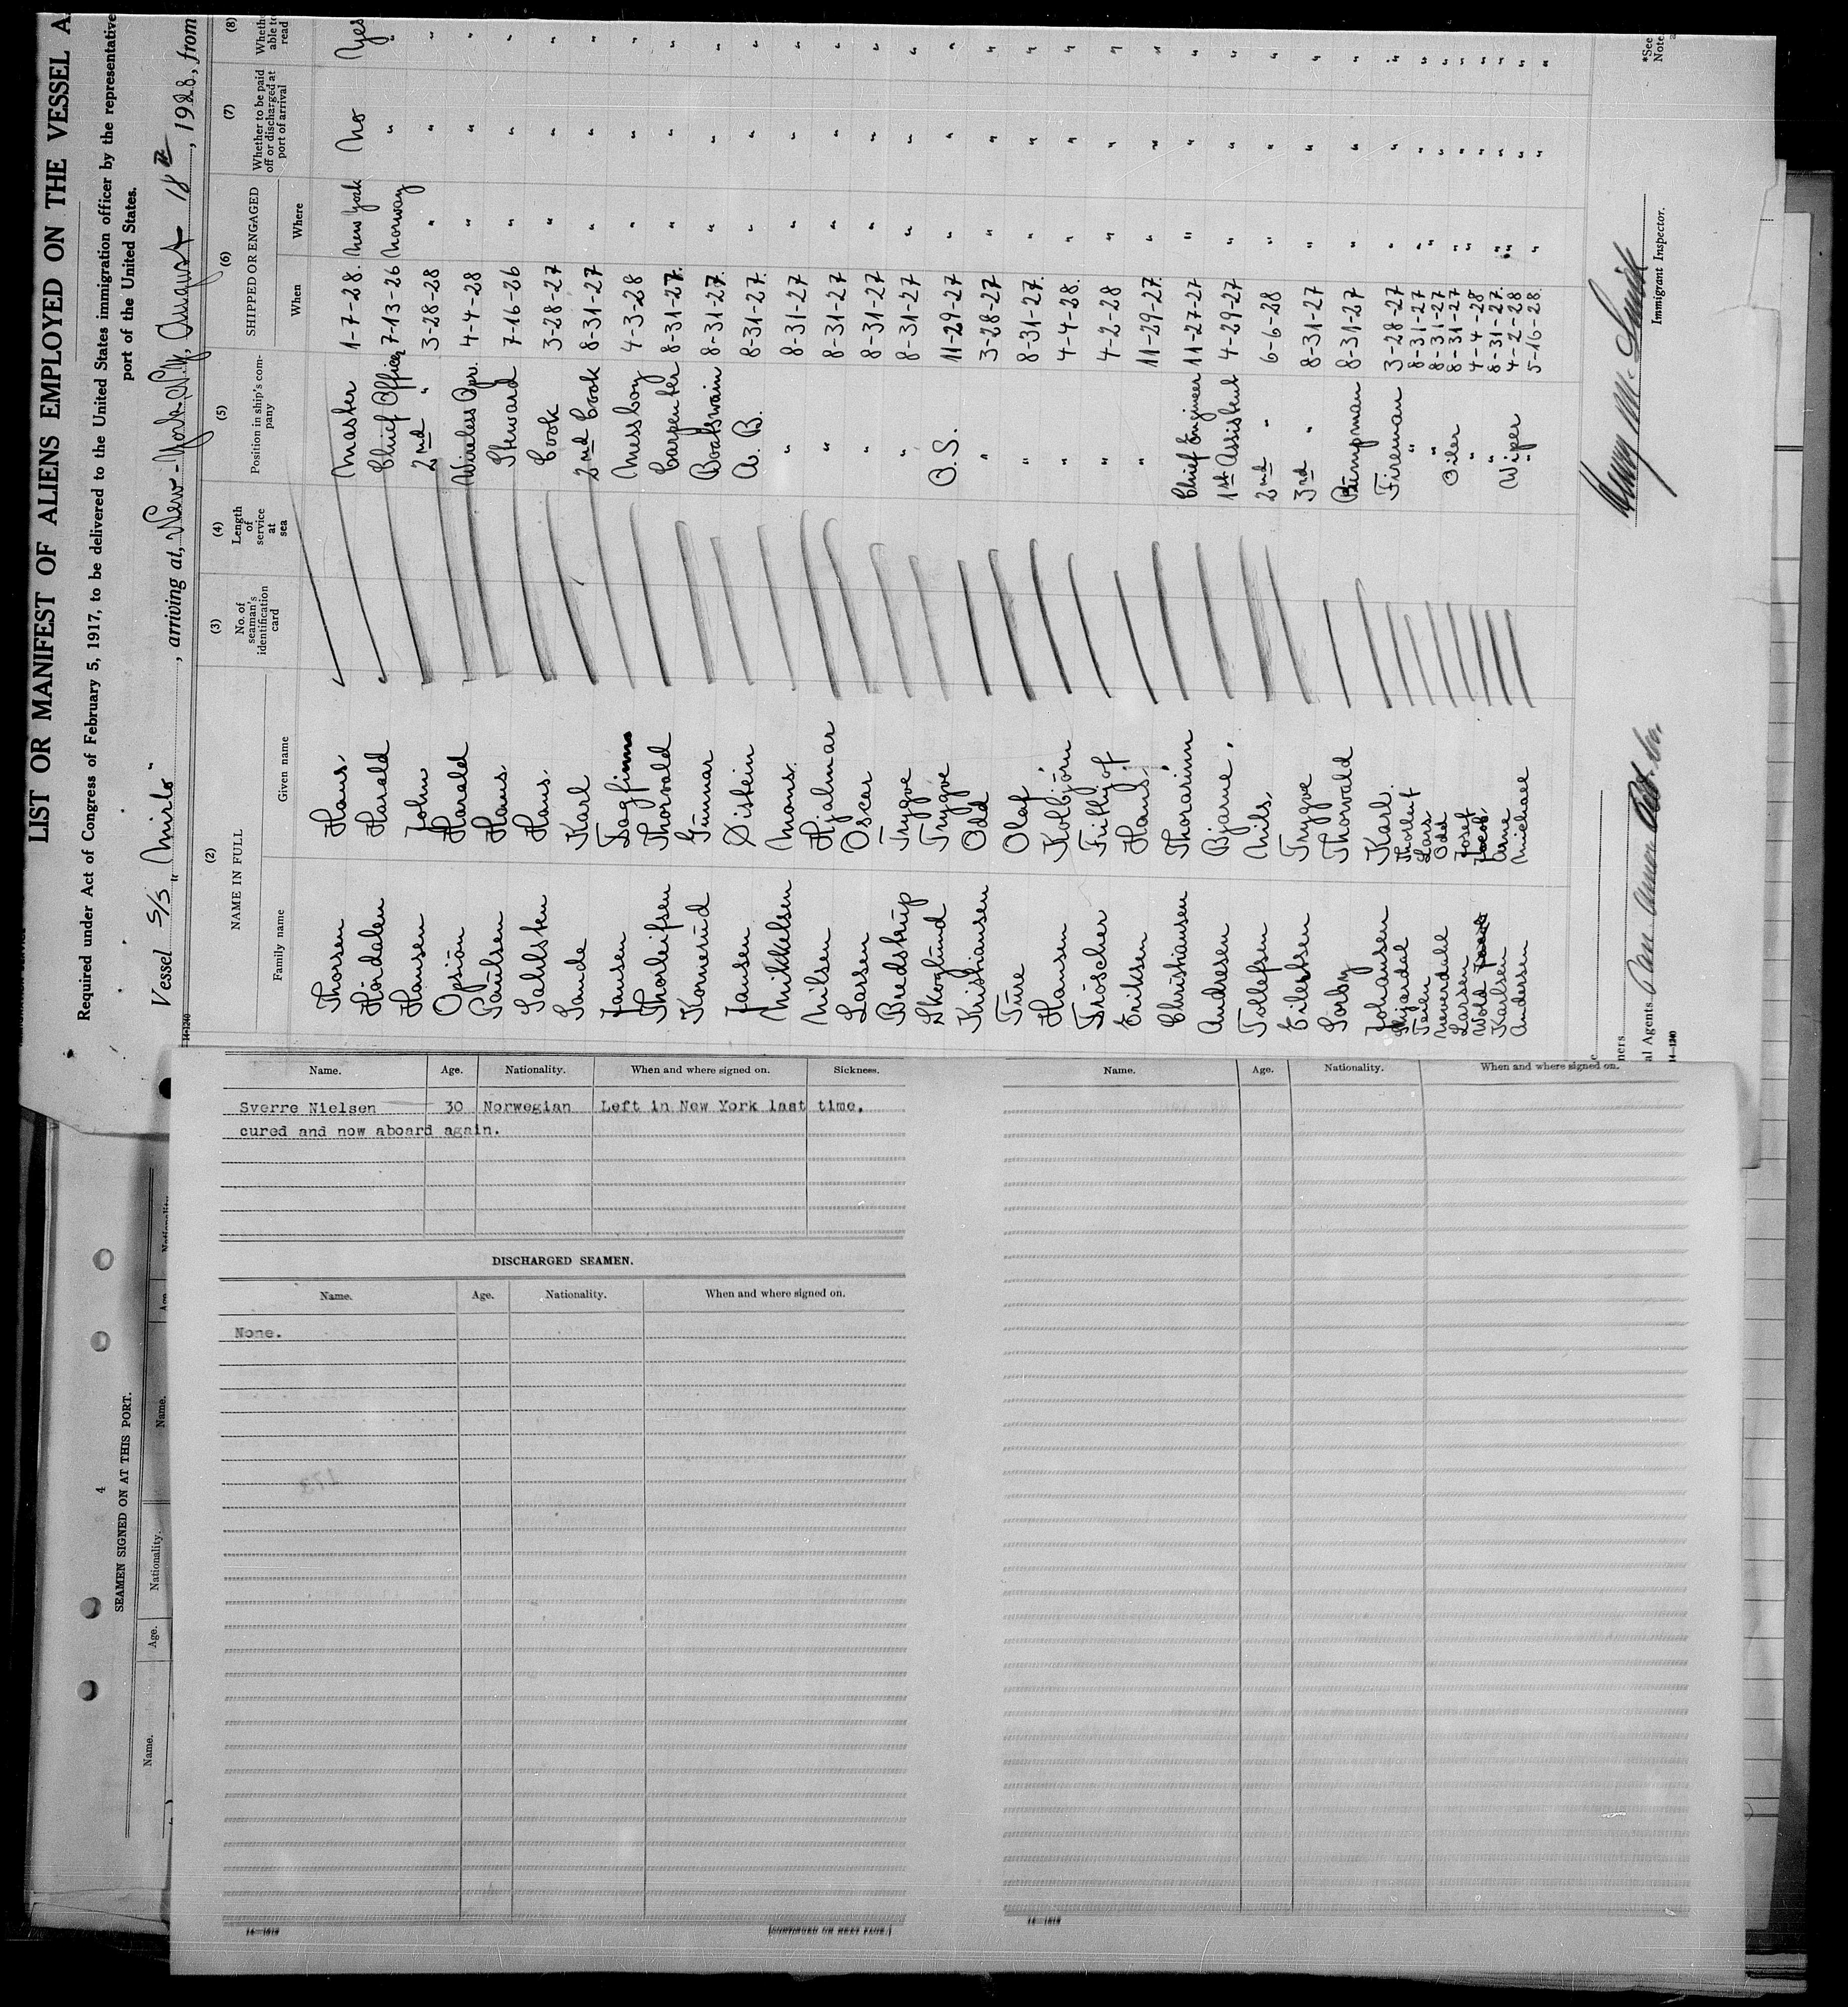 LIST OR MANIFEST OF ALIENS EMPLOYED ON THE VESSEL A
Required under Act of Congress of February 5, 1917, to be delivered to the United States immigration officer by the representative
port of the United States.
Vessel S/S "Mirlo", arriving at New-York, N.Y., August 18th, 1928, from
(2) (3) (4) (5) (6) (7) (8)
NAME IN FULL No. of seaman's identification card Length of service at sea Position in ship's company SHIPPED OR ENGAGED Whether to be paid off or discharged at port of arrival Whether able to read
Family name Given name When Where
Thorsen Hans. Master 1-7-28. New York No Yes
Hordalen Harald Chief Officer 7-13-26 Norway " "
Hansen John 2nd " 3-28-28 " " "
Opsion Harald Wireless Opr. 4-4-28 " " "
Paulsen Hans. Steward 7-16-26 " " "
Sahlsten Hans. Cook 3-28-27 " " "
Sande Karl 2nd Cook 8-31-27 " " "
Jansen Dagfinn Messboy 4-3-28 " " "
Thorleifsen Thorvald Carpenter 8-31-27. " " "
Kornerud Gunnar Boatswain 8-31-27. " " "
Jansen Øistein A. B. 8-31-27. " " "
Mikkelsen Mons. " 8-31-27 " " "
Nilsen Hjalmar " 8-31-27 " " "
Larsen Oscar " 8-31-27 " " "
Bredstrup Trygve " 8-31-27 " " "
Skoglund Trygve O.S. 11-29-27 " " "
Kristiansen Odd " 3-28-27 " " "
Ture Olaf " 8-31-27. " " "
Hansen Kolbjørn " 4-4-28. " " "
Fröscher Frithjof " 4-2-28 " " "
Eriksen Hans. " 11-29-27. " " "
Christiansen Thorarinn Chief Engineer 11-27-27 " " "
Andresen Bjarne. 1st Assistent 4-29-27 " " "
Tollefsen Nils. 2nd " 6-6-28 " " "
Eilertsen Trygve 3rd " 8-31-27 " " "
Sorby Thorvald Pumpman 8-31-27 " " "
Johansen Karl. Fireman 3-28-27 " " "
Thorleif " 8-31-27 " " "
Teien Lars. " 8-31-27 " " "
Neverdahl Odd Oiler 8-31-27 " " "
Larsen Josef " 4-4-28 " " "
Wold Jacob. " 8-31-27. " " "
Karlsen Arne Wiper 4-2-28 " " "
Andersen Michael " 5-16-28. " " "
*See Note.
Immigrant Inspector.
ners
al Agents Pan Amer. Pet. Co.
14-1240
14-1240
Name. Age. Nationality. When and where signed on. Sickness.
Sverre Nielsen 30 Norwegian Left in New York last time,
cured and now aboard again.
DISCHARGED SEAMEN.
Name. Age. Nationality. When and where signed on.
None.
14-1819
[CONTINUED ON NEXT PAGE.]
Name. Age. Nationality. When and where signed on.
14-1819
4
SEAMEN SIGNED ON AT THIS PORT.
Name. Age. Nationality. Name. Age. Nationality.